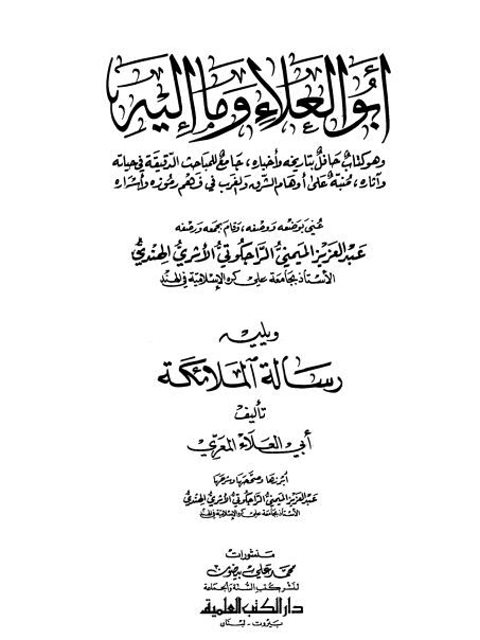 أبو العلاء وما إليه
وهو كتاب حافل بتاريخه وأخباره، جامع للمباحث الدقيقة في حياته
وآثاره، منبّه على أوهام الشرق والغرب في فهم رموزه وأسراره
عُني بوضعه ووصفه، وقام بجمعه ورصفه
عبد العزيز الميمنيُّ الراجكوتيُّ الأثريُّ الهنديُّ
الأستاذ بجامعة عليكره الإسلامية في الهند
ويليه
رسالة الملائكة
تأليف
أبي العلاء المعري
أبرزها وصححها وشرحها
عبد العزيز الميمنيُّ الراجكوتيُّ الأثريُّ الهنديُّ
الأستاذ بجامعة عليكره الإسلامية في الهند
منشورات
محمد علي بيضون
لنشر كتب السنة والجماعة
دار الكتب العلمية
بيروت - لبنان